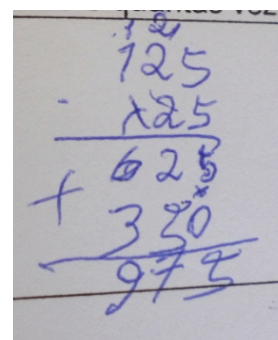 1 2
125
x25
625
+ 350
975